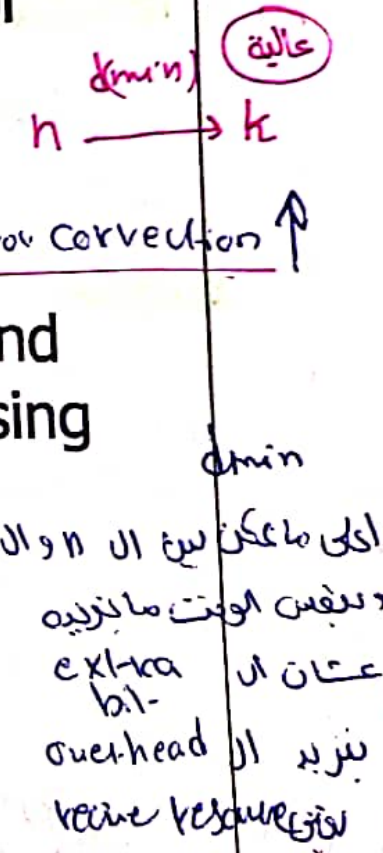 عالية
d(min)
n → k
or correction ↑
nd
sing
dmin
اعلى ما يمكن بين ال n وال
وبنفس الوقت ما بنزيده
عشان ال extra
bit
بنزيد ال overhead